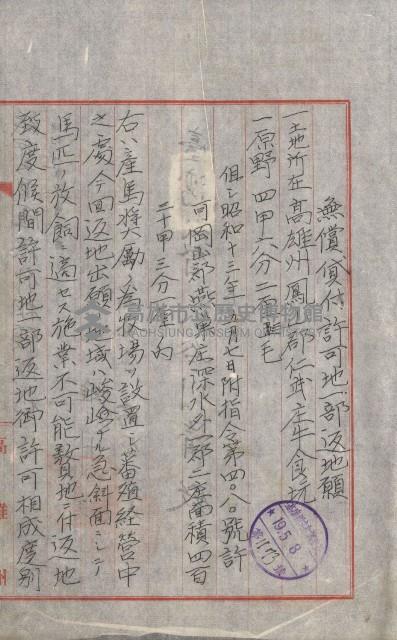 無償貸付許可地一部返地願
一土地所在高雄州鳳山郡仁武庄牛食坑
一原野四甲六分二厘毛
但シ昭和十三年五月七日附指令第四〇八〇號許
可岡山郡燕巢庄深水外一郡二庄面積四百
二十甲三分 內
右ハ產馬獎勵ノ爲牧場ヲ設置シ蕃殖経營中
之處今回返地出願地域ハ峻峻ナル急斜面ニシテ
馬匹ノ放飼ニ適セス施業不可能贅地ニ付返地
致度候間許可地一部返地御許可相成度別
高雄州
高雄市立歷史博物館
19.5.8